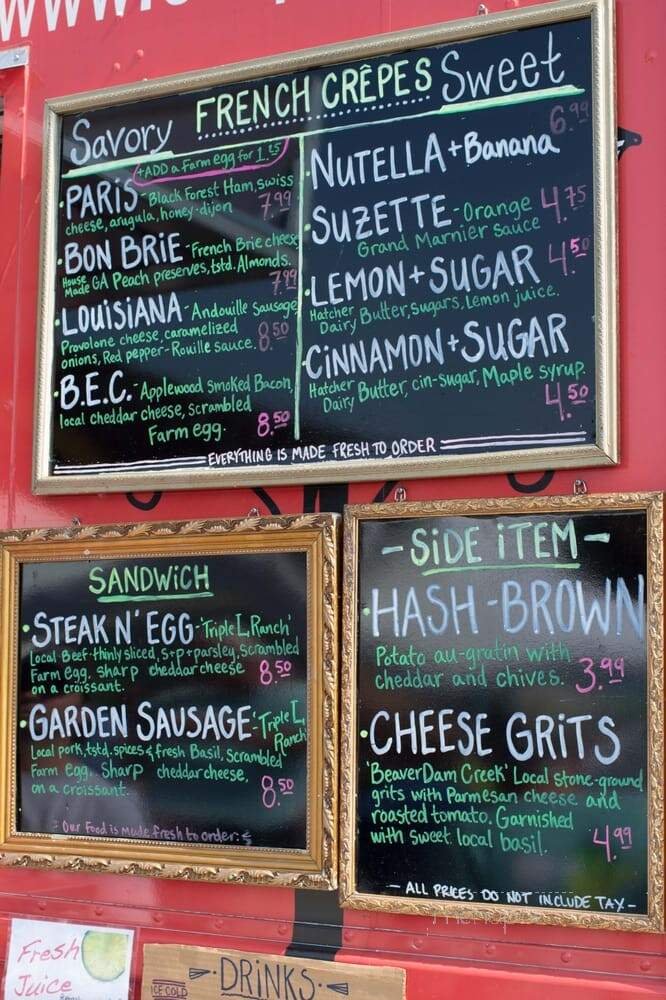 FRENCH CRÊPES
Savory
+ADD a Farm egg for 1.75
PARIS - Black Forest Ham, swiss
cheese, arugula, honey-dijon 7.99
BON BRIE - French Brie cheese
House Made GA Peach preserves, tstd. Almonds.
7.99
LOUISIANA - Andouille Sausage,
Provolone cheese, caramelized
onions, Red pepper-Rouille sauce. 8.50
B.E.C. - Applewood Smoked Bacon,
local cheddar cheese, scrambled
Farm egg. 8.50
Sweet
6.99
NUTELLA + Banana
SUZETTE - Orange 4.75
Grand Marnier sauce
4.50
LEMON + SUGAR
Hatcher Dairy Butter, sugars, Lemon juice.
CINNAMON + SUGAR
Hatcher Dairy Butter, cin-sugar, Maple syrup.
4.50
EVERYTHING IS MADE FRESH TO ORDER
SANDWICH
STEAK N' EGG - 'Triple L Ranch'
Local Beef-thinly sliced, S+P+parsley, scrambled
Farm egg, sharp cheddar cheese
on a croissant. 8.50
GARDEN SAUSAGE - 'Triple L Ranch'
Local pork, tstd. spices & fresh Basil, Scrambled
Farm egg, Sharp cheddar cheese,
on a croissant. 8.50
Our Food is made fresh to order
- SIDE ITEM -
HASH-BROWN
Potato au-gratin with
cheddar and chives. 3.99
CHEESE GRITS
'BeaverDam Creek' Local stone-ground
grits with Parmesan cheese and
roasted tomato. Garnished
with sweet local basil. 4.99
- ALL PRICES DO NOT INCLUDE TAX -
Fresh
Juice
DRINKS
ICE COLD